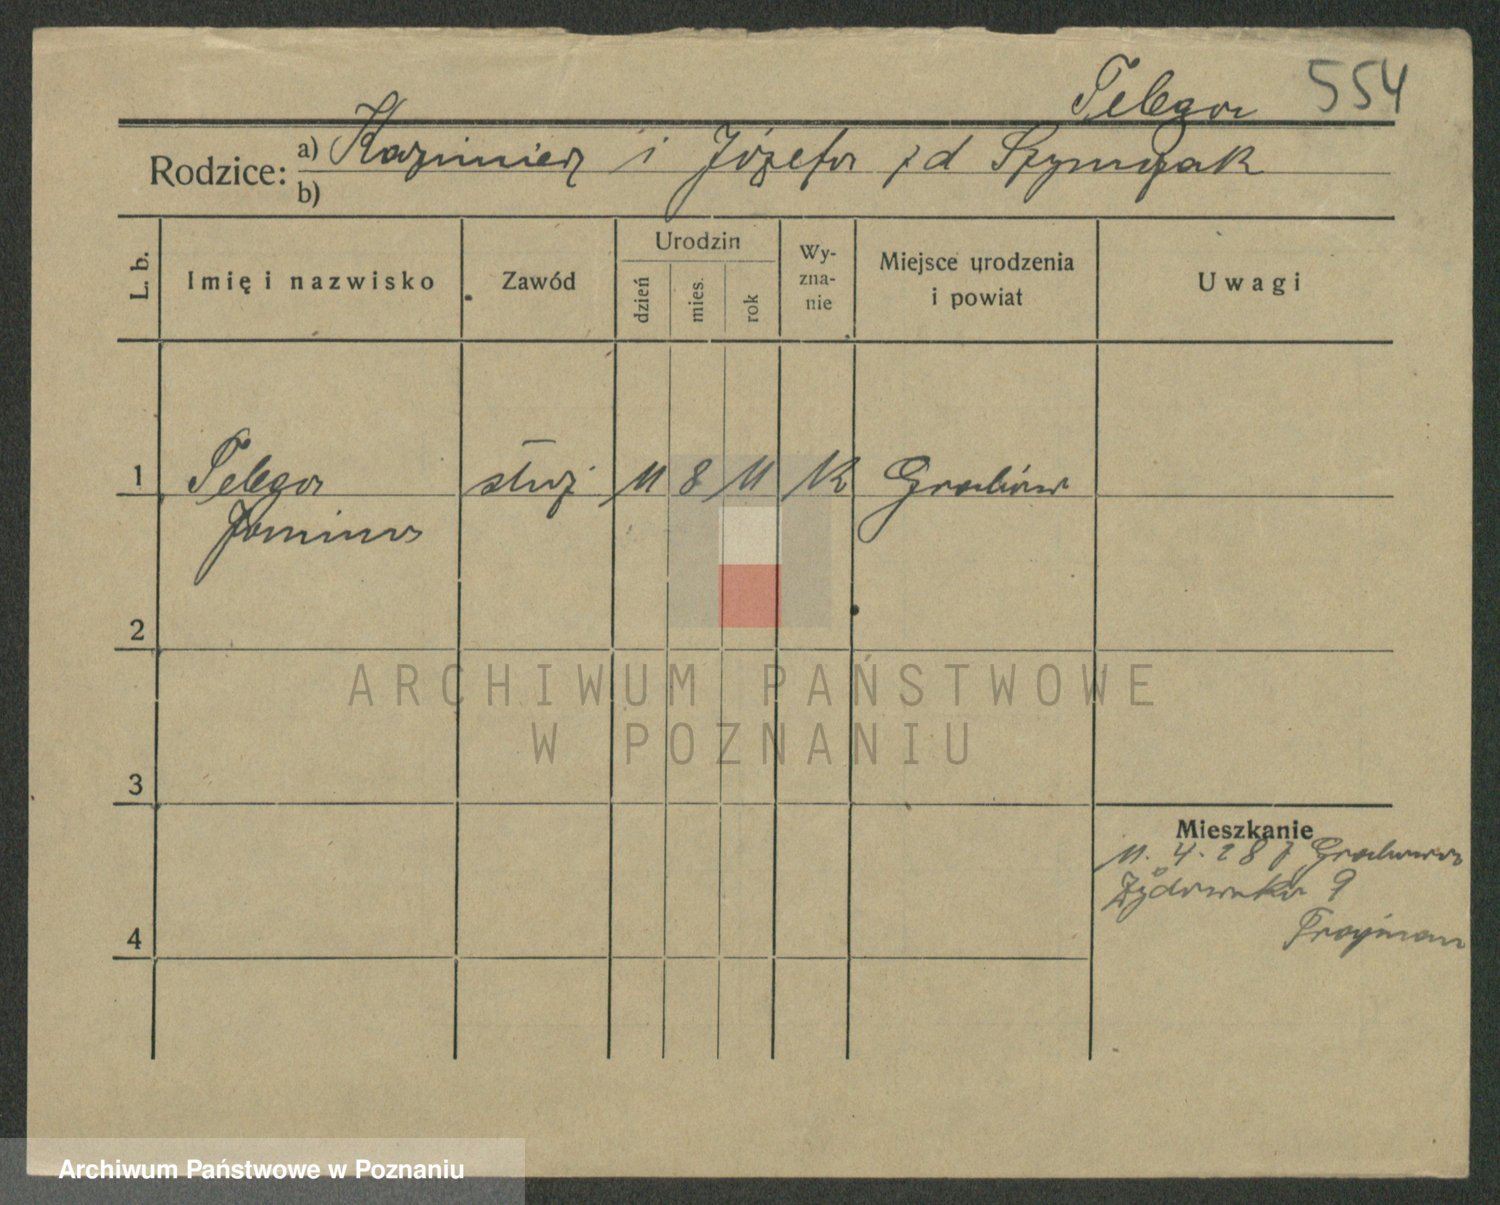 Telega 554
Rodzice: a) Kazimierz i Józefa z d Szymczak
b)
L. b. Imię i nazwisko Zawód Urodzin dzień mies. rok Wy-zna-nie Miejsce urodzenia i powiat Uwagi
1 Telega służ 11 8 11 K Grabów
Janina
2
ARCHIWUM PAŃSTWOWE
W POZNANIU
3
Mieszkanie
11. 4. 28 z Grabowa
Żydowska 9
4
Archiwum Państwowe w Poznaniu